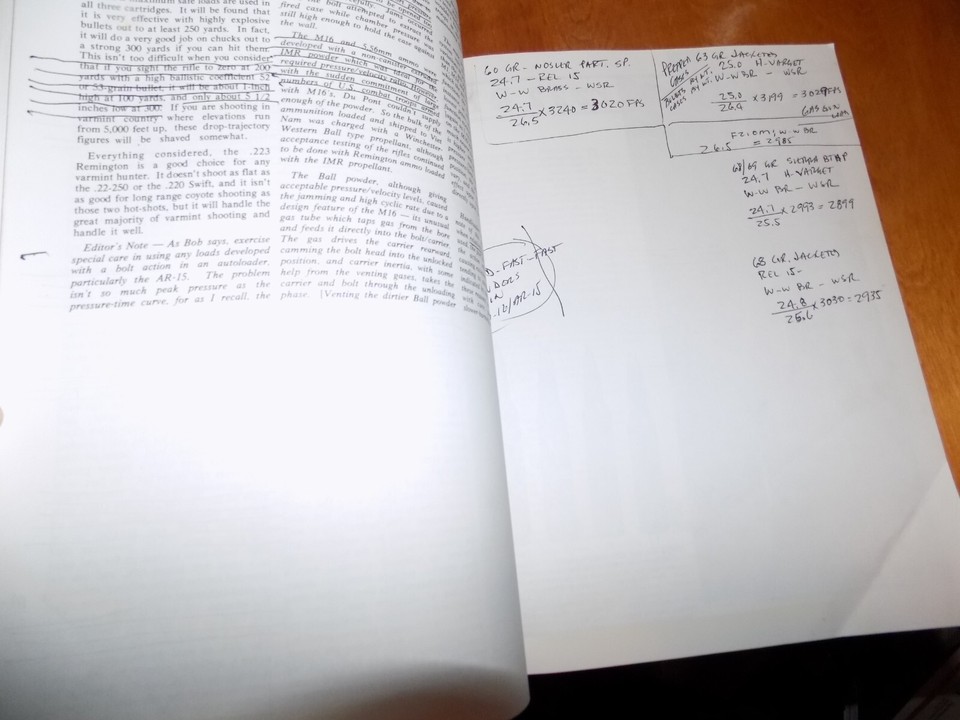 all three cartridges. It will be found that
it is very effective with highly explosive
bullets out to at least 250 yards. In fact,
it will do a very good job on chucks out to
a strong 300 yards if you can hit them.
This isn't too difficult when you consider
that if you sight the rifle to zero at 200
yards with a high ballistic coefficient 52
or 53-grain bullet, it will be about 1-inch
high at 100 yards, and only about 5 1/2
inches low at 300. If you are shooting in
varmint country where elevations run
from 5,000 feet up, these drop-trajectory
figures will be shaved somewhat.
Everything considered, the .223
Remington is a good choice for any
varmint hunter. It doesn't shoot as flat as
the .22-250 or the .220 Swift, and it isn't
as good for long range coyote shooting as
those two hot-shots, but it will handle the
great majority of varmint shooting and
handle it well.
Editor's Note — As Bob says, exercise
special care in using any loads developed
with a bolt action in an autoloader,
particularly the AR-15. The problem
isn't so much peak pressure as the
pressure-time curve, for as I recall, the
fired case while chamber pressure was
still high enough to hold the case against
the wall.
The M16 and 5.56mm ammo were
developed with a non-canister
IMR powder which was ideal for the
required pressure/velocity ratio. However,
with the sudden commitment of large
numbers of U.S. combat troops armed
with M16's, Du Pont couldn't supply
enough of the powder. So the bulk of the
ammunition loaded and shipped to Viet
Nam was charged with a Winchester-
Western Ball type propellant, although
acceptance testing of the rifles continued
to be done with Remington ammo loaded
with the IMR propellant.
The Ball powder, although giving
acceptable pressure/velocity levels, caused
the jamming and high cyclic rate due to a
design feature of the M16 — its unusual
gas tube which taps gas from the bore
and feeds it directly into the bolt/carrier.
The gas drives the carrier rearward,
camming the bolt head into the unlocked
position, and carrier inertia, with some
help from the venting gases, takes the
carrier and bolt through the unloading
phase. (Venting the dirtier Ball powder
60 GR. NOSLER PART. SP.
24.7 - REL 15
W-W BRASS - WSR
24.7
26.5 × 3240 = 3020 FPS
63 GR JACKETED
25.0 H-VARGET
W-W BR - WSR
25.0
26.4 × 3199 = 3029 FPS
26.5 = 2985
68/69 GR SIERRA BTHP
24.7 H-VARGET
W-W BR - WSR
24.7
25.5 × 2993 = 2899
68 GR. JACKETED
REL 15-
W-W BR - WSR
24.8
25.6 × 3030 = 2935
-FAST-FAST
-12/AR-15